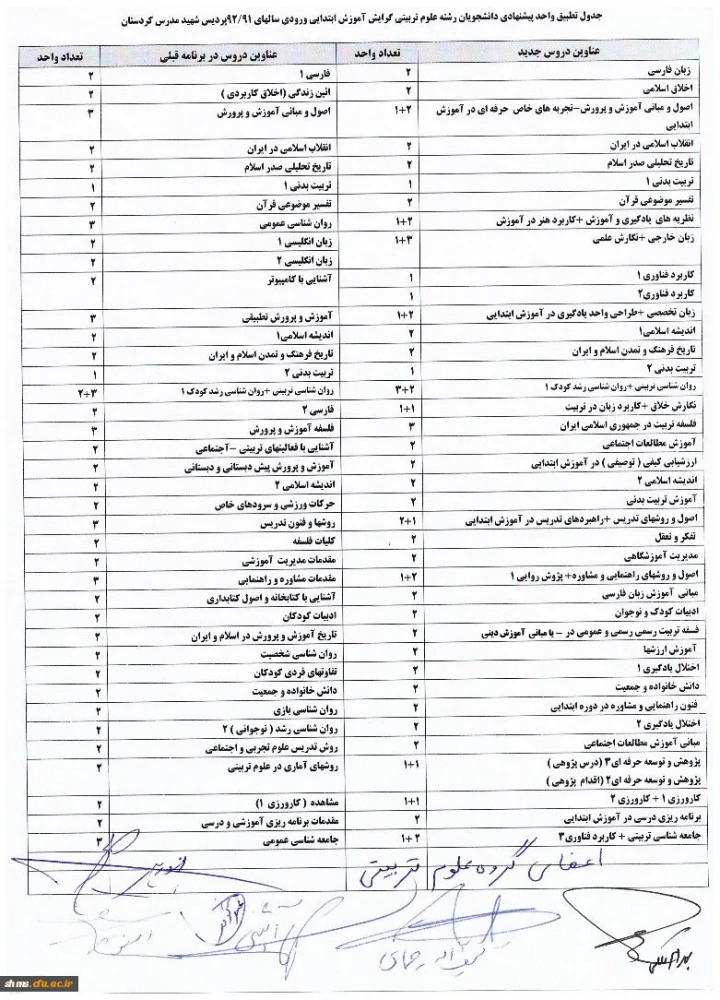 جدول تطبیق واحد پیشنهادی دانشجویان رشته علوم تربیتی گرایش آموزش ابتدایی ورودی سالهای ۹۲/۹۱پردیس شهید مدرس کردستان
عناوین دروس جدید تعداد واحد عناوین دروس در برنامه قبلی تعداد واحد
زبان فارسی ۲ فارسی ۱ ۲
اخلاق اسلامی ۲ آئین زندگی (اخلاق کاربردی ) ۲
اصول و مبانی آموزش و پرورش-تجربه های خاص حرفه ای در آموزش ۱+۲ اصول و مبانی آموزش و پرورش ۳
ابتدایی
انقلاب اسلامی در ایران ۲ انقلاب اسلامی در ایران ۲
تاریخ تحلیلی صدر اسلام ۲ تاریخ تحلیلی صدر اسلام ۲
تربیت بدنی ۱ ۱ تربیت بدنی ۱ ۱
تفسیر موضوعی قرآن ۲ تفسیر موضوعی قرآن ۲
نظریه های یادگیری و آموزش +کاربرد هنر در آموزش ۱+۲ روان شناسی عمومی ۳
زبان خارجی +نگارش علمی ۱+۳ زبان انگلیسی ۱ ۲
زبان انگلیسی ۲ ۲
کاربرد فناوری ۱ ۱ آشنایی با کامپیوتر ۲
کاربرد فناوری۲ ۱
زبان تخصصی +طراحی واحد یادگیری در آموزش ابتدایی ۱+۲ آموزش و پرورش تطبیقی ۳
اندیشه اسلامی۱ ۲ اندیشه اسلامی۱ ۲
تاریخ فرهنگ و تمدن اسلام و ایران ۲ تاریخ فرهنگ و تمدن اسلام و ایران ۲
تربیت بدنی ۲ ۱ تربیت بدنی ۲ ۱
روان شناسی تربیتی +روان شناسی رشد کودک ۱ ۳+۲ روان شناسی تربیتی +روان شناسی رشد کودک ۱ ۲+۳
نگارش خلاق +کاربرد زبان در تربیت ۱+۱ فارسی ۲ ۲
فلسفه تربیت در جمهوری اسلامی ایران ۳ فلسفه آموزش و پرورش ۳
آموزش مطالعات اجتماعی ۲ آشنایی با فعالیتهای تربیتی -اجتماعی ۲
ارزشیابی کیفی ( توصیفی ) در آموزش ابتدایی ۲ آموزش و پرورش پیش دبستانی و دبستانی ۲
اندیشه اسلامی ۲ ۲ اندیشه اسلامی ۲ ۲
آموزش تربیت بدنی ۲ حرکات ورزشی و سرودهای خاص ۲
اصول و روشهای تدریس +راهبردهای تدریس در آموزش ابتدایی ۲+۱ روشها و فنون تدریس ۳
تفکر و تعقل ۲ کلیات فلسفه ۲
مدیریت آموزشگاهی ۲ مقدمات مدیریت آموزشی ۲
اصول و روشهای راهنمایی و مشاوره+ پژوش روایی ۱ ۱+۲ مقدمات مشاوره و راهنمایی ۳
مبانی آموزش زبان فارسی ۲ آشنایی با کتابخانه و اصول کتابداری ۲
ادبیات کودک و نوجوان ۲ ادبیات کودکان ۲
فسفه تربیت رسمی رسمی و عمومی در - یا مبانی آموزش دینی ۲ تاریخ آموزش و پرورش در اسلام و ایران ۲
آموزش ارزشها ۲ روان شناسی شخصیت ۲
اختلال یادگیری ۱ ۲ تفاوتهای فردی کودکان ۲
دانش خانواده و جمعیت ۲ دانش خانواده و جمعیت ۲
فنون راهنمایی و مشاوره در دوره ابتدایی ۲ روان شناسی بازی ۲
اختلال یادگیری ۲ ۲ روان شناسی رشد ( نوجوانی ) ۲ ۲
مبانی آموزش مطالعات اجتماعی ۲ روش تدریس علوم تجربی و اجتماعی ۲
پژوهش و توسعه حرفه ای۳ (درس پژوهی ) ۱+۱ روشهای آماری در علوم تربیتی ۲
پژوهش و توسعه حرفه ای۲ (اقدام پژوهی )
کارورزی ۱ + کارورزی ۲ ۱+۱ مشاهده ( کارورزی ۱) ۲
برنامه ریزی درسی در آموزش ابتدایی ۲ مقدمات برنامه ریزی آموزشی و درسی ۲
جامعه شناسی تربیتی + کاربرد فناوری۳ ۱+۲ جامعه شناسی عمومی ۳
اعضای گروه علوم تربیتی
shms.cfu.ac.ir